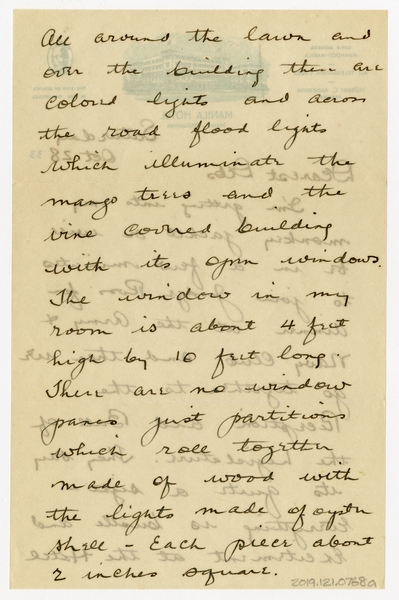 All around the lawn and
over the building there are
colored lights and across
the road flood lights
which illuminate the
mango trees and the
vine covered building
with its open windows.
The window in my
room is about 4 feet
high by 10 feet long.
There are no window
panes just partitions
which roll together
made of wood with
the lights made of oyster
shell - Each piece about
2 inches square.
2019.121.0758a